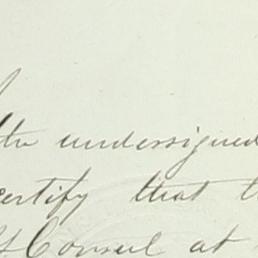 the undersigned
certify that t
Consul at